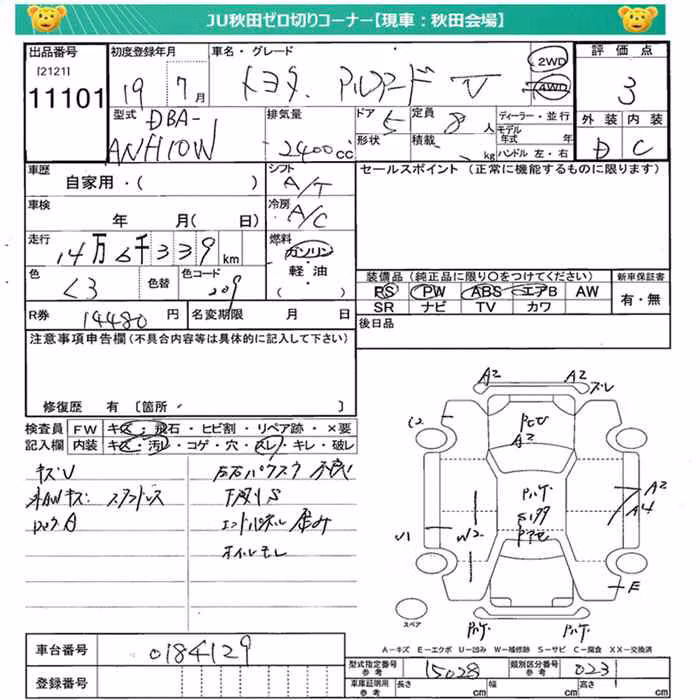 JU秋田ゼロ切りコーナー【現車：秋田会場】
出品番号 初度登録年月 車名・グレード 評価点
[2121]
11101
19 7月 トヨタ アルファード V
2WD
4WD
3
型式 DBA-
ANH10W
排気量
2400cc
ドア 5 定員 8人
形状 積載 kg
ディーラー・並行
モデル年式 年
ハンドル 左・右
外装 内装
D C
車歴
自家用・( )
シフト
A/T
セールスポイント（正常に機能するものに限ります）
車検
年 月(日)
冷房
A/C
走行
14万6千339km
燃料
ガソリン
軽油
( )
色
色替
色コード
209
装備品（純正品に限り〇をつけてください） 新車保証書
PS PW ABS エアB AW
SR ナビ TV カワ
有・無
R券 14480円 名変期限 月 日
後日品
注意事項申告欄（不具合内容等は具体的に記入して下さい）
修復歴 有 〔箇所 〕
検査員 FW キズ・飛石・ヒビ割・リペア跡・×要
記入欄 内装 キズ・汚レ・コゲ・穴・スレ・キレ・破レ
キズU
左右パワスラ 不良
外AWキズ
下廻りS
エンドパネル 歪み
オイルモレ
A2 A2
ズレ
A2
A2
A4
U1
W2
E
スペア
A－キズ E－エクボ U－凹み W－補修跡 S－サビ C－腐食 XX－交換済
車台番号 0184129
登録番号
型式指定番号 参考 15028 類別区分番号 参考 023
車庫証明用 参考 長さ cm 幅 cm 高さ cm